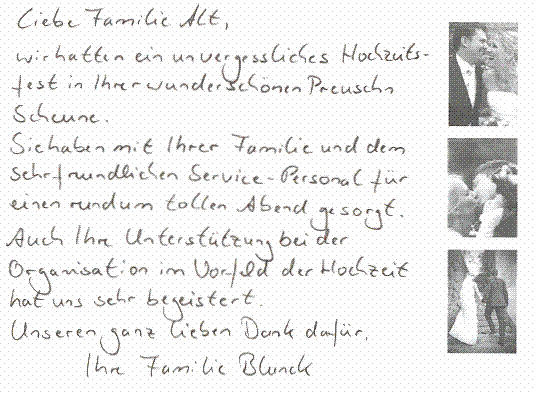 Liebe Familie Alt,
wir hatten ein unvergessliches Hochzeits-
fest in Ihrer wunderschönen Preuschn
Scheune.
Sie haben mit Ihrer Familie und dem
sehr freundlichen Service-Personal für
einen rundum tollen Abend gesorgt.
Auch Ihre Unterstützung bei der
Organisation im Vorfeld der Hochzeit
hat uns sehr begeistert.
Unseren ganz lieben Dank dafür.
Ihre Familie Blunck